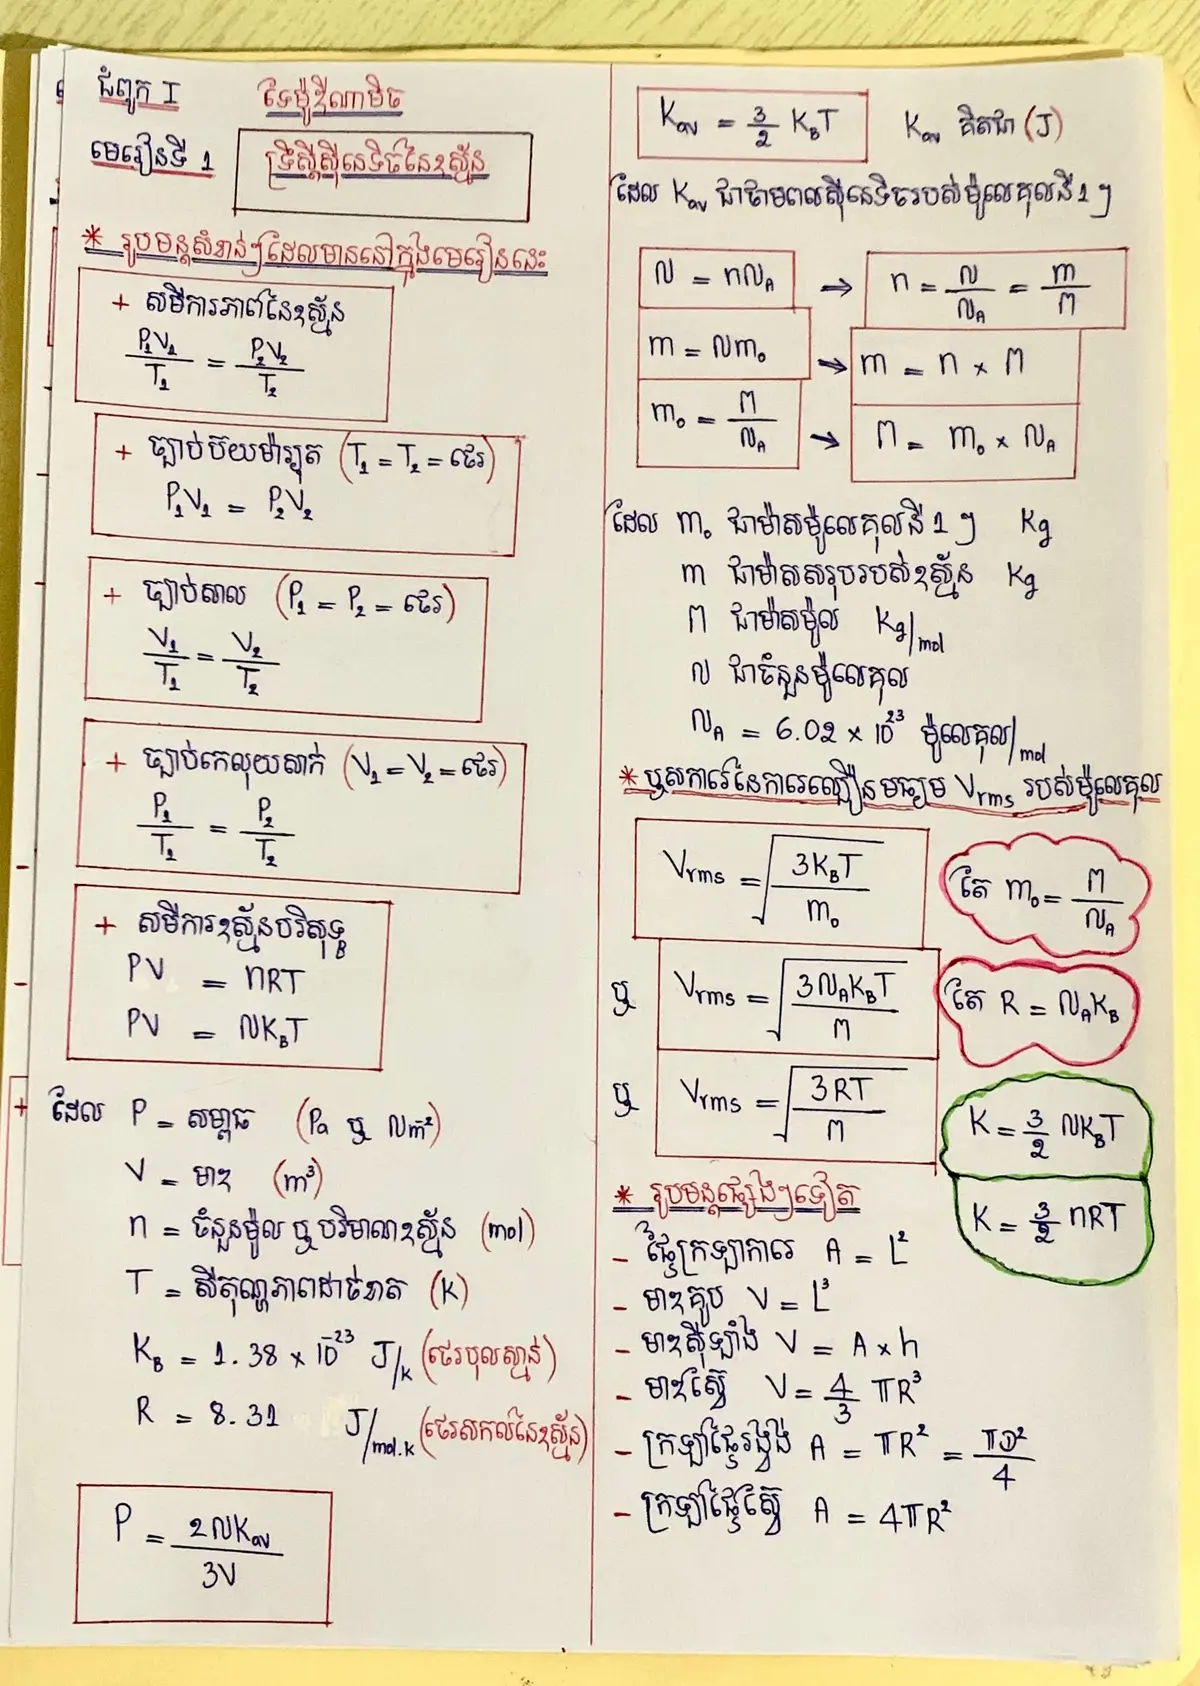 ជំពូក I ទែម៉ូឌីណាមិច
មេរៀនទី 1 ទ្រឹស្តីស៊ីនេទិចនៃឧស្ម័ន
* រូបមន្តសំខាន់ៗដែលមាននៅក្នុងមេរៀននេះ
+ សមីការភាពនៃឧស្ម័ន
P₁V₁/T₁ = P₂V₂/T₂
+ ច្បាប់ប៊យម៉ារ្យុត (T₁ = T₂ = ថេរ)
P₁V₁ = P₂V₂
+ ច្បាប់សាល (P₁ = P₂ = ថេរ)
V₁/T₁ = V₂/T₂
+ ច្បាប់កេលុយសាក់ (V₁ = V₂ = ថេរ)
P₁/T₁ = P₂/T₂
+ សមីការឧស្ម័នបរិសុទ្ធ
PV = nRT
PV = NK_BT
ដែល P = សម្ពាធ (Pa ឬ N/m²)
V = មាឌ (m³)
n = ចំនួនម៉ូល ឬ បរិមាណឧស្ម័ន (mol)
T = សីតុណ្ហភាពដាច់ខាត (K)
K_B = 1.38 × 10⁻²³ J/K (ថេរបុលស្មាន់)
R = 8.31 J/mol.K (ថេរសកលនៃឧស្ម័ន)
P = 2NK_av/3V
K_av = 3/2 K_BT K_av គិតជា (J)
ដែល K_av ជាថាមពលស៊ីនេទិចរបស់ម៉ូលេគុលនីមួយៗ
N = nN_A → n = N/N_A = m/M
m = Nm₀ → m = n × M
m₀ = M/N_A → M = m₀ × N_A
ដែល m₀ ជាម៉ាសម៉ូលេគុលនី 1 ៗ Kg
m ជាម៉ាសសរុបរបស់ឧស្ម័ន Kg
M ជាម៉ាសម៉ូល Kg/mol
N ជាចំនួនម៉ូលេគុល
N_A = 6.02 × 10²³ ម៉ូលេគុល/mol
* ឬសការេនៃការេល្បឿនមធ្យម Vrms របស់ម៉ូលេគុល
Vrms = √(3K_BT/m₀) តែ m₀ = M/N_A
ឬ Vrms = √(3N_AK_BT/M) តែ R = N_AK_B
ឬ Vrms = √(3RT/M)
K = 3/2 NK_BT
K = 3/2 nRT
* រូបមន្តផ្សេងៗទៀត
- ផ្ទៃក្រឡាការេ A = L²
- មាឌគូប V = L³
- មាឌស៊ីឡាំង V = A × h
- មាឌស្វ៊ែ V = 4/3 πR³
- ក្រឡាផ្ទៃរង្វង់ A = πR² = πD²/4
- ក្រឡាផ្ទៃស្វ៊ែ A = 4πR²